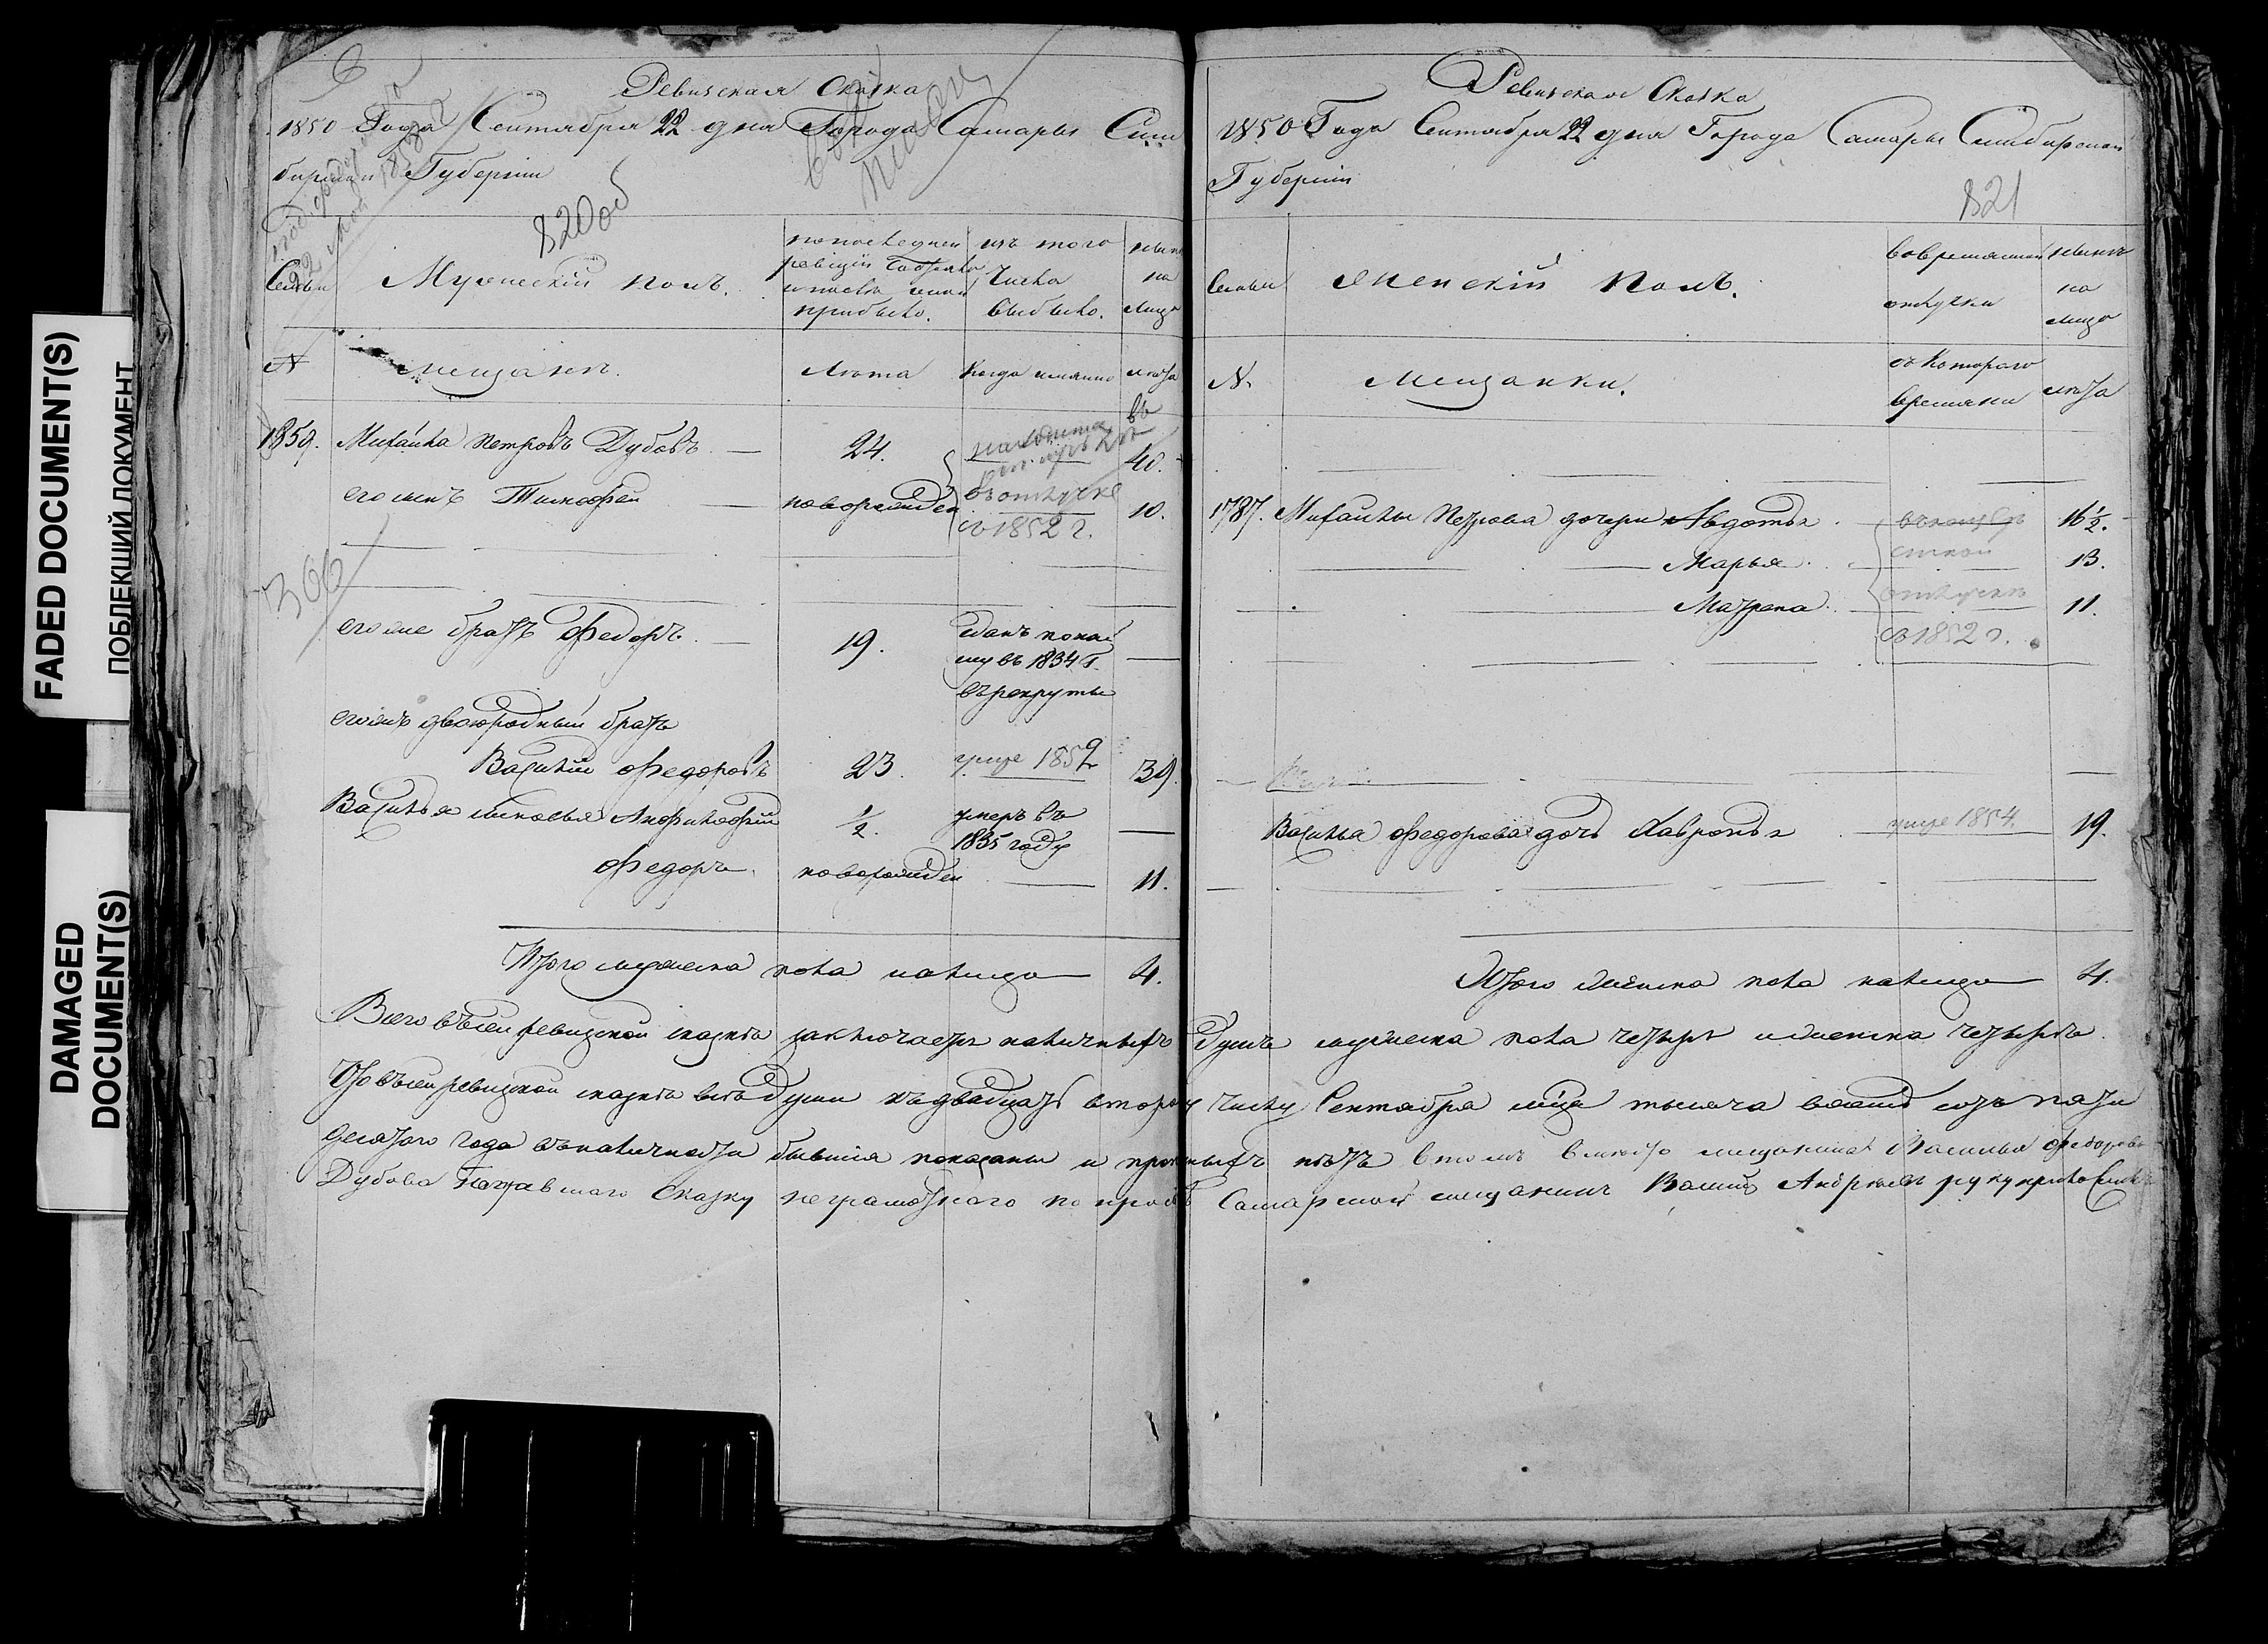 FADED DOCUMENT(S)
ПОБЛЕКШИЙ ДОКУМЕНТ
DAMAGED
DOCUMENT(S)
6
Ревизская Сказка
1850 Года Сентября 22 дня Города Самары Сим
бирской Губернии
820 об
Семьи
Мужескій полъ.
по последней
ревизіи состояло
и после оной
прибыло.
изъ того
числа
выбыло.
ныне
на
лицо
N
мещане.
Лета
Когда имянно
лета
1859. Михайла Петровъ Дубовъ 24.
въ
40.
его сынъ Тимофей новорожден 10.
в отлучке
со 1852 г.
366
его же братъ Федоръ 19.
сданъ по най
му въ 1834 г.
въ рекруты
его жъ двоюродный братъ
Василий Федоровъ 23. умре 1852 39.
Василья сыновья Анфиногфий 1/2.
умеръ въ
1835 году
Федоръ новорожден 11.
Итого мужеска пола налицо 4.
Ревизская Сказка
1850 Года Сентября 22 дня Города Самары Симбирской
Губернии
821
Семьи
Женскій полъ.
во временной
отлучки
ныне
на
лицо
N.
Мещанки.
съ которого
времяни
лета
1787. Михайлы Петрова дочери Авдотья 16 1/2.
Марья 13.
Матрена 11.
отлучке
со 1852 г.
Василья Федорова дочь Хавронья умре 1854. 19.
Итого женска пола налицо 4.
Всего въ сей ревизской сказке заключаетъ наличныхъ душъ мужеска пола четыре и женска четыре.
Что въ сей ревизской сказке все души къ двадцать втором числу Сентября м-ца тысяча восемь сотъ пяти
десятого года въ наличности бывшия показаны и прописныхъ нетъ в томъ вместо мещанина Василья Федорова
Дубова подавшаго сказку неграмотного по прозбе Самарской мещанинъ Василий Андреевъ руку приложилъ